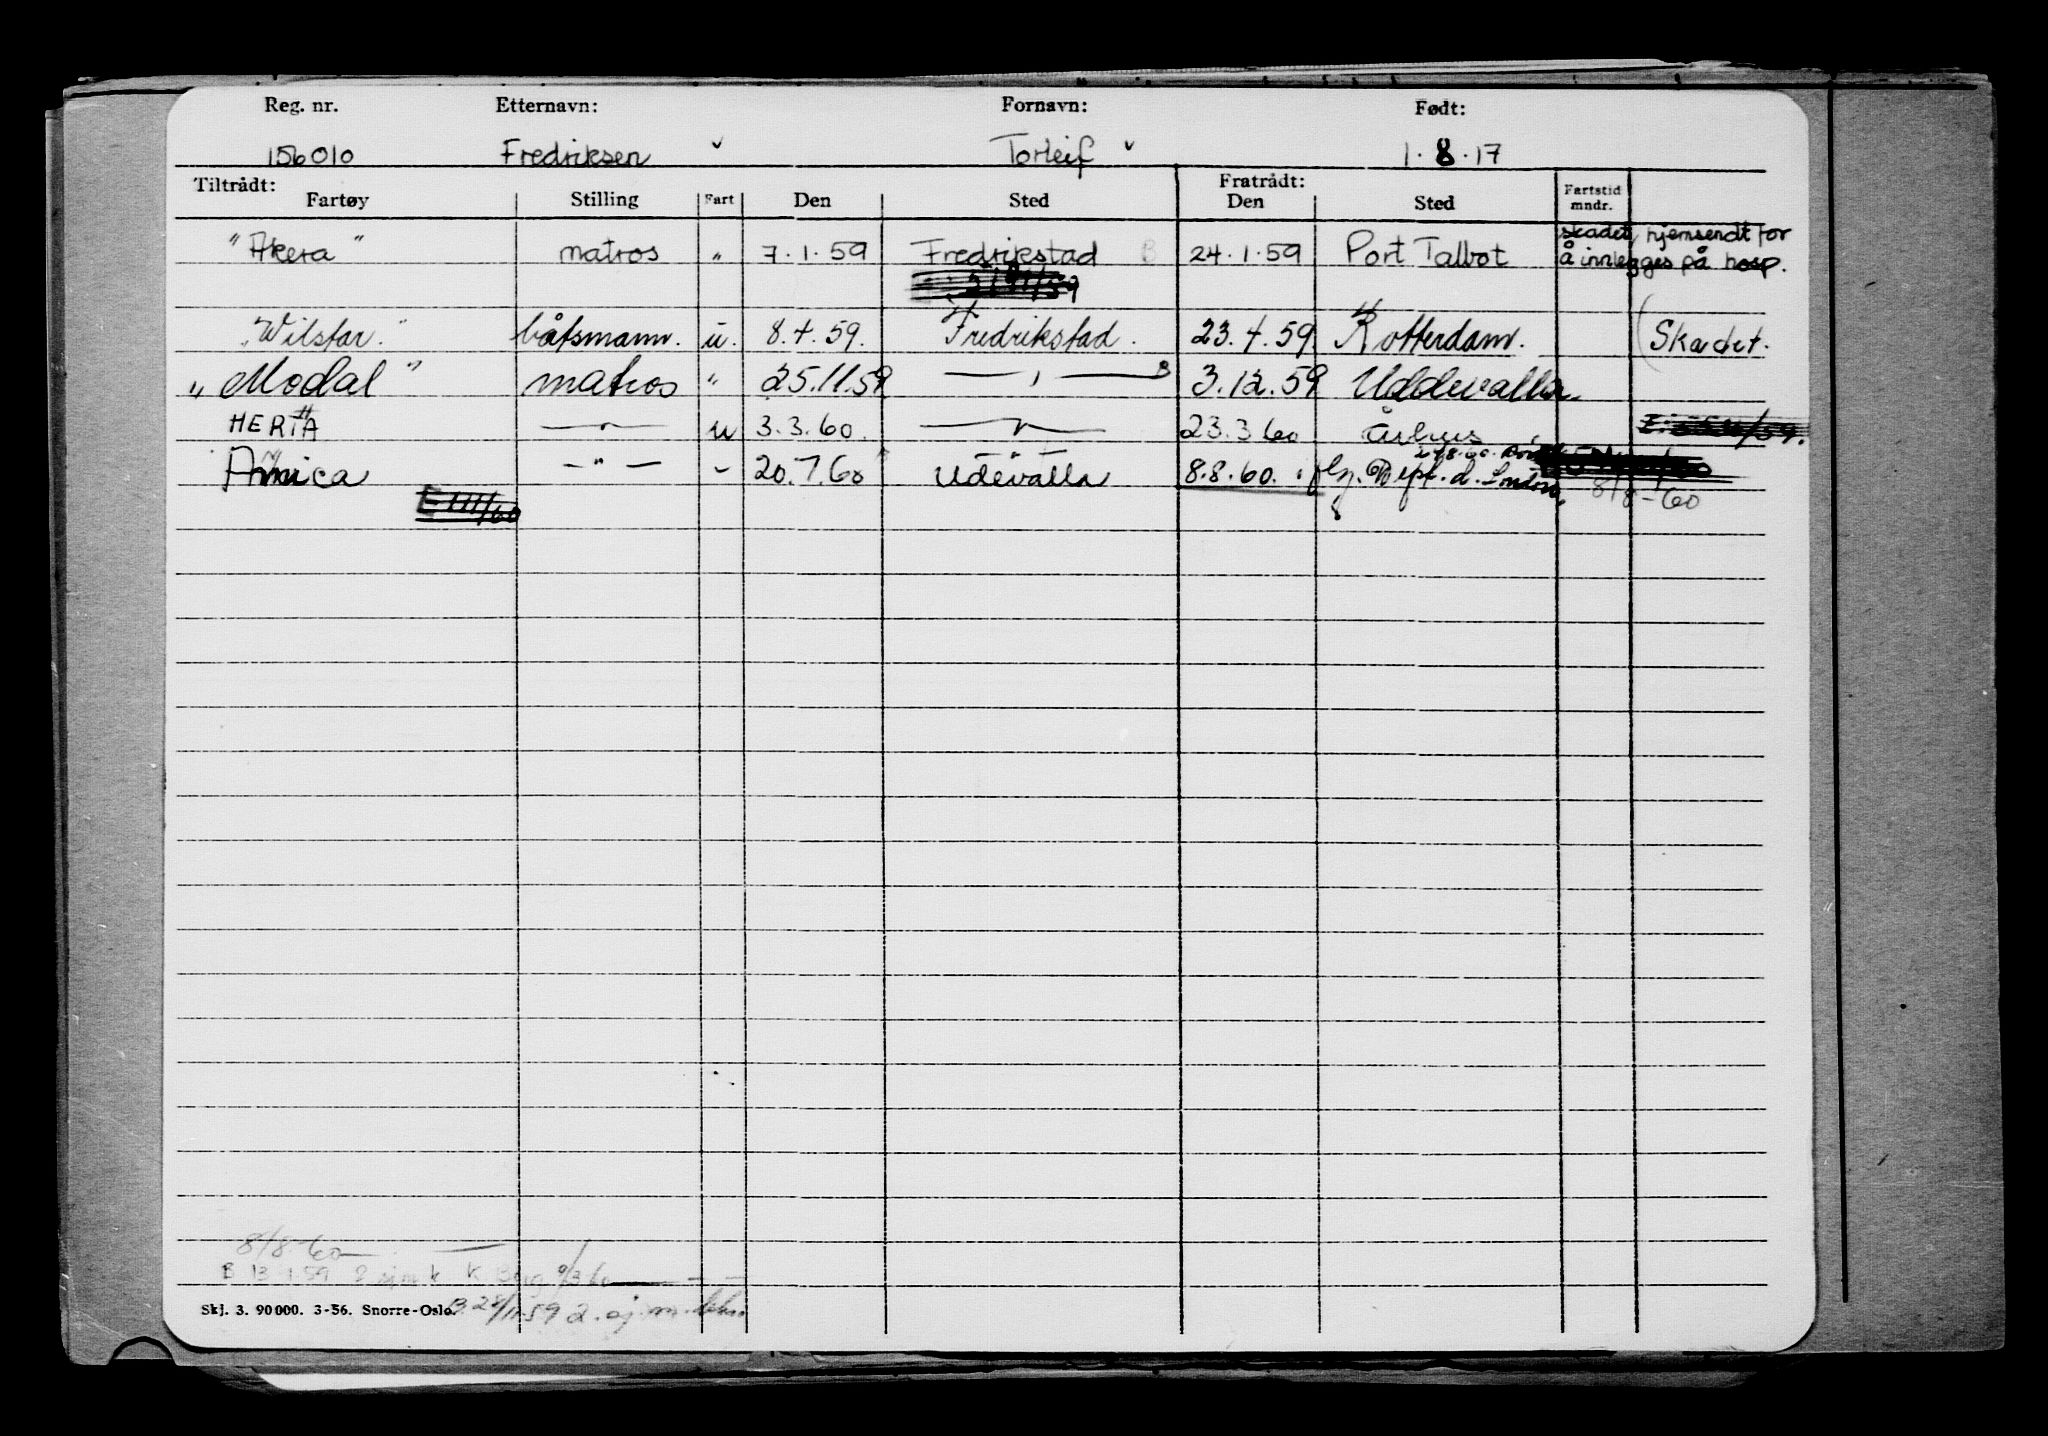 Reg. nr. Etternavn: Fornavn: Født:
156010 Fredriksen Torleif 1.8.17
Tiltrådt: Fratrådt:
Fartøy Stilling Fart Den Sted Den Sted Fartstid mndr.
"Akera" matros " 7.1.59 Fredrikstad B 24.1.59 Port Talbot skadet, hjemsendt for
å innlegges på hosp.
"Wilstar." båtsmann. u. 8.4.59. Fredrikstad. 23.4.59 Rotterdam. (Skadet.
"Modal" matros " 25.11.59 — " — B 3.12.59 Uddevalla.
"HERTA" — " — u 3.3.60. — " — 23.3.60 Århus
"Annica" — " — - 20.7.60 Udevalla 8.8.60. London 8/8-60
8/8-60
B 13.1.59 K Berg 9/3 60
Skj. 3. 90000. 3-56. Snorre-Oslo. B. 28/11-59 2.